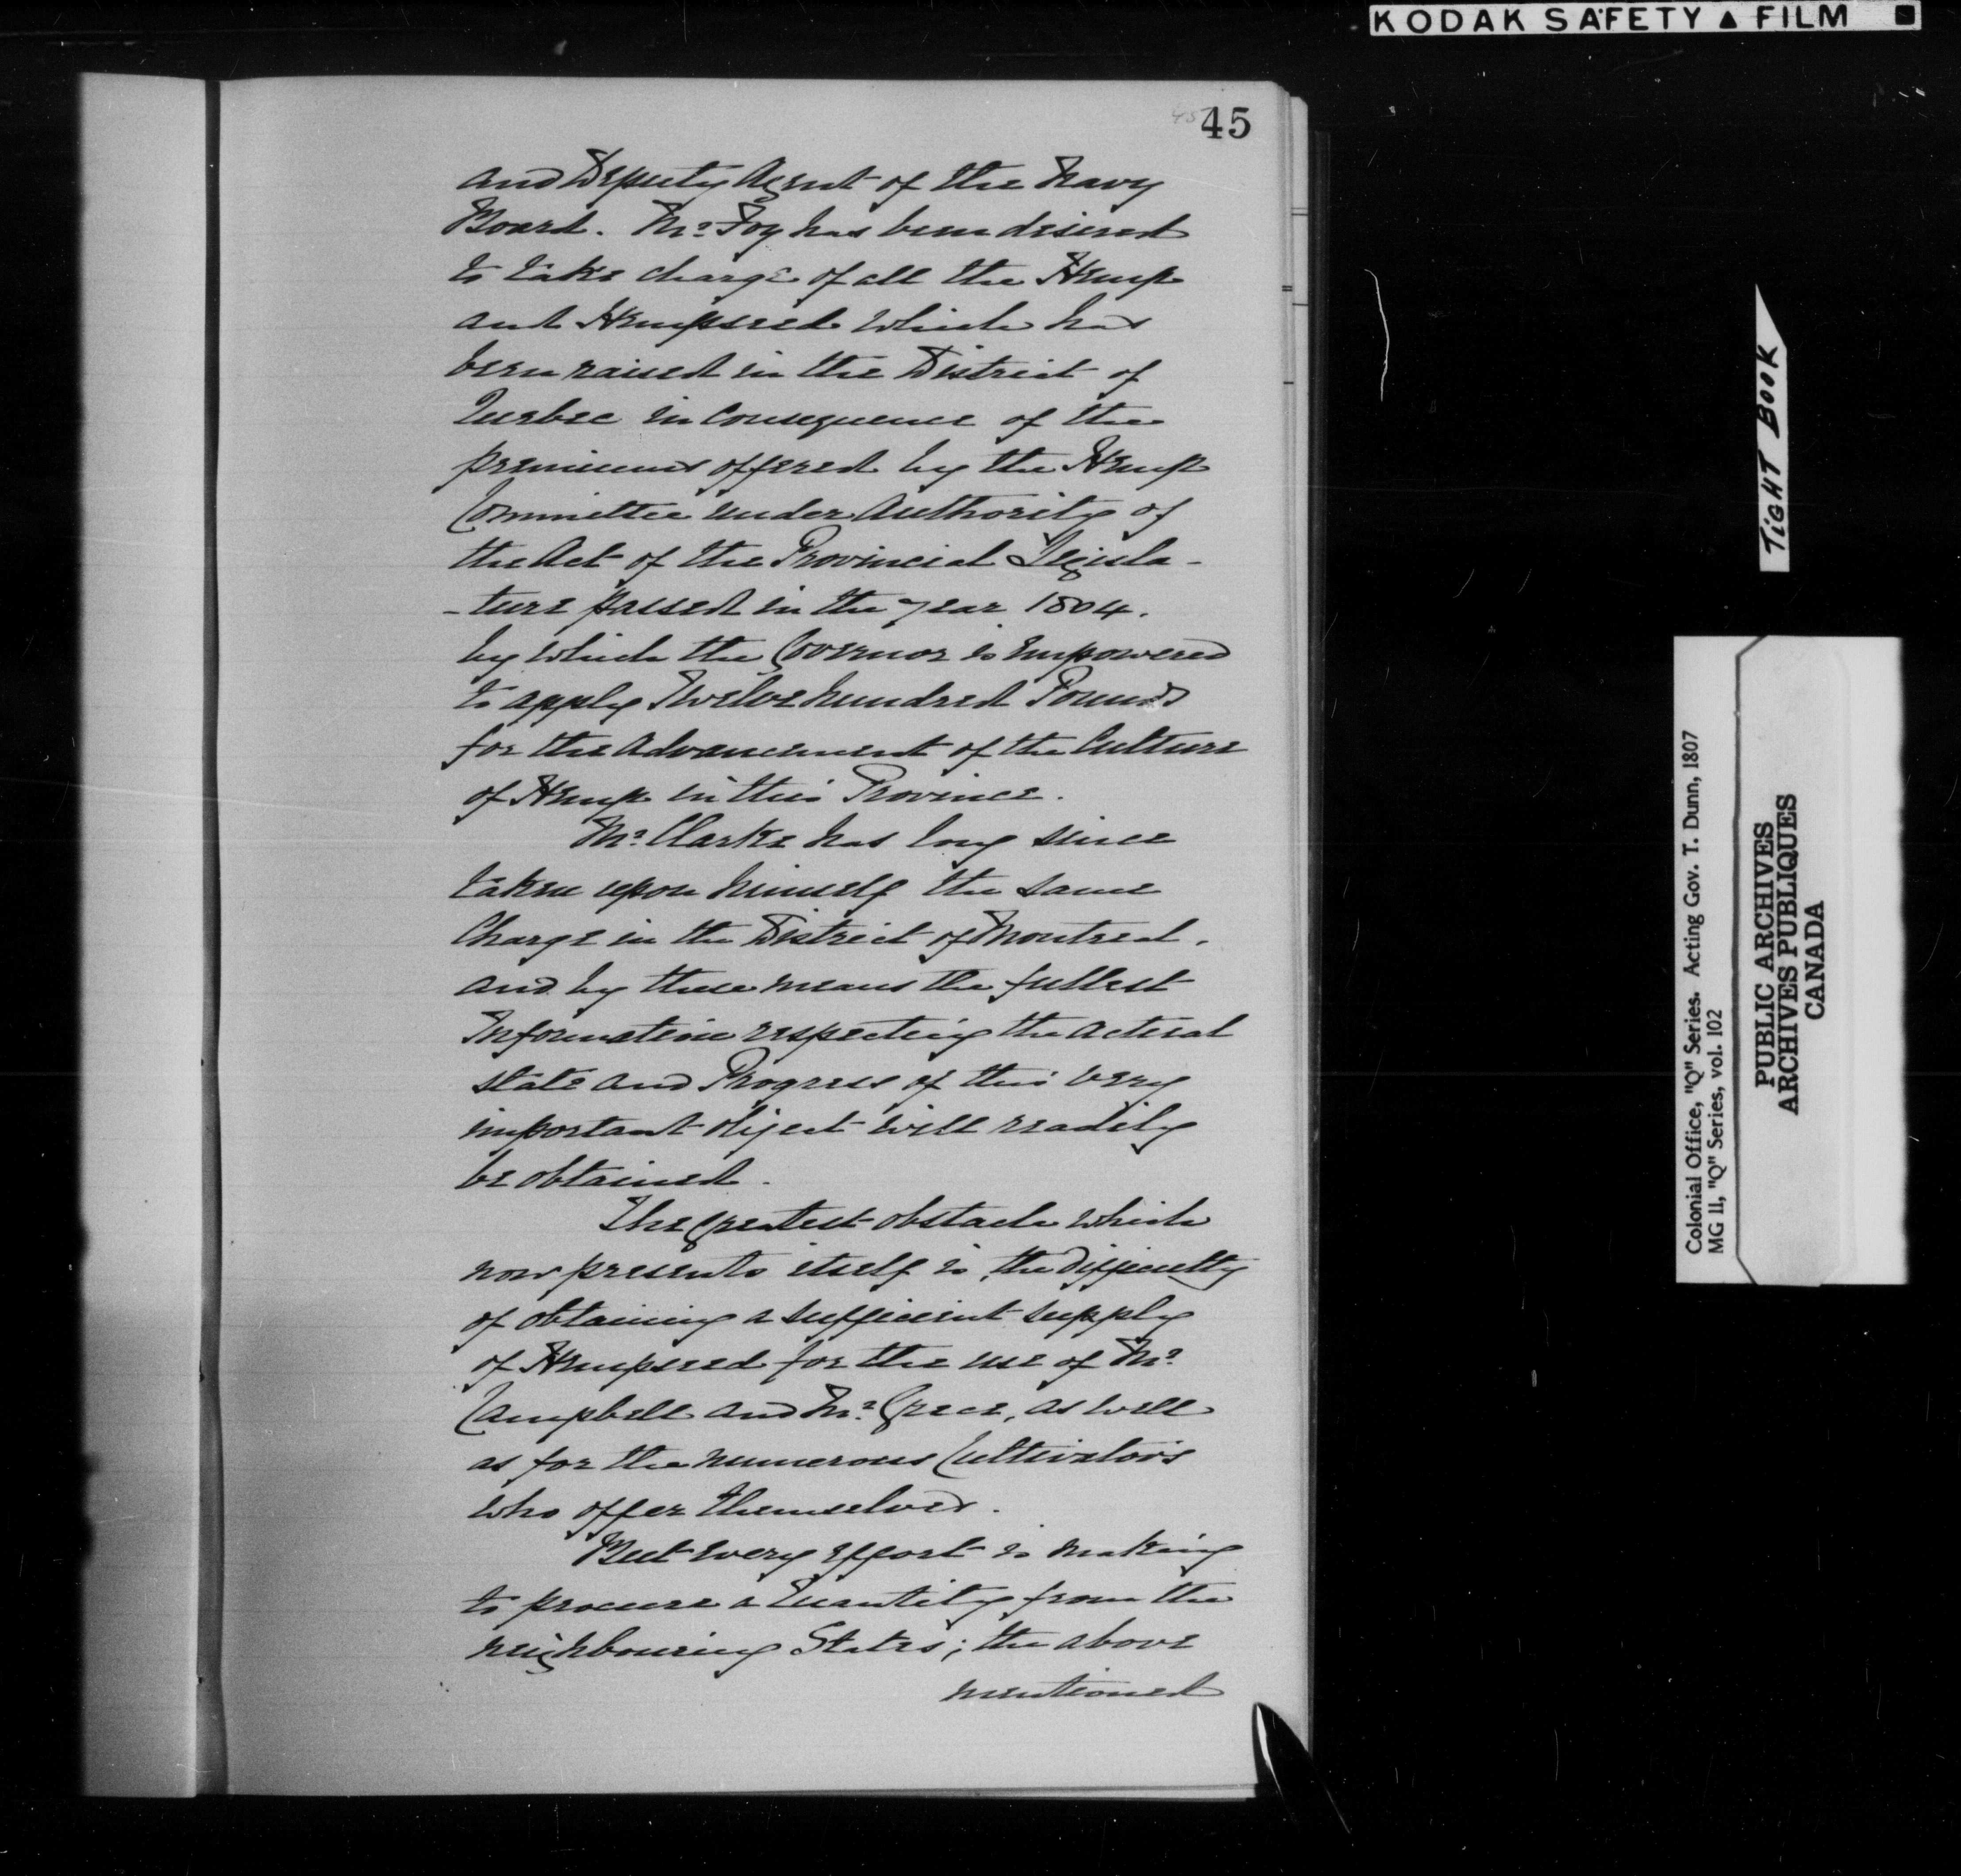 KODAK SAFETY ▲ FILM
45
and Deputy Agent of the Navy
Board. Mr. Foy has been desired
to take charge of all the Hemp
and Hempseed which has
been raised in the District of
Quebec in consequence of the
premiums offered by the Hemp
Committee under Authority of
the Act of the Provincial Legisla-
-ture passed in the year 1804.
by which the Governor is empowered
to apply Twelve hundred Pounds
for the Advancement of the Culture
of Hemp in this Province.
Mr. Clarke has long since
taken upon himself the same
Charge in the District of Montreal,
and by these means the fullest
Information respecting the actual
state and Progress of this very
important object will readily
be obtained.
The greatest obstacle which
now presents itself is the difficulty
of obtaining a sufficient supply
of Hempseed for the use of Mr.
Campbell and Mr. Grece, as well
as for the numerous Cultivators
who offer themselves.
But every effort is making
to procure a Quantity from the
neighbouring States; the above
mentioned
TIGHT BOOK
Colonial Office, "Q" Series. Acting Gov. T. Dunn, 1807
MG 11, "Q" Series, vol. 102
PUBLIC ARCHIVES
ARCHIVES PUBLIQUES
CANADA